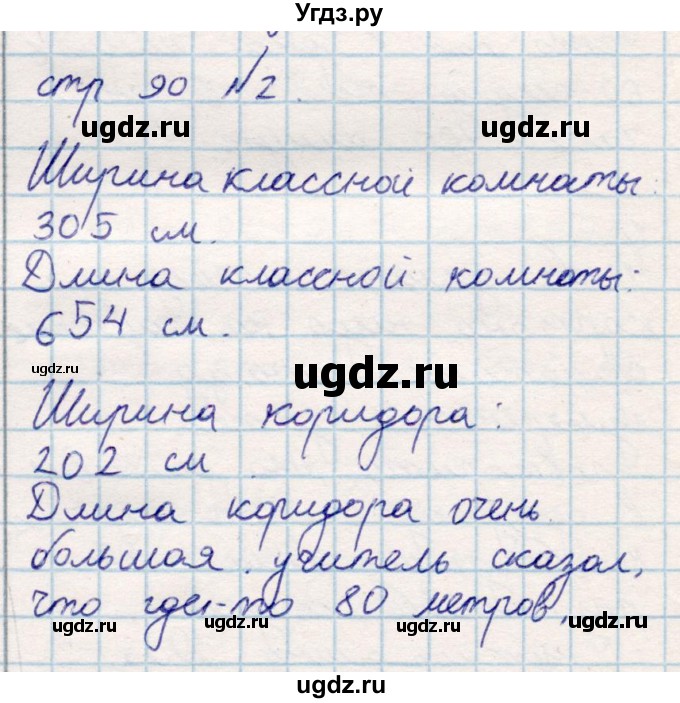 Угдз.ру
стр 90 №2.
ugdz.ru ugdz.ru
Ширина классной комнаты:
305 см.
ugdz.ru
Длина классной комнаты:
654 см.
ugdz.ru ugdz.ru ugdz.ru
Ширина коридора:
202 см
ugdz.ru
Длина коридора очень
большая. учитель сказал,
что где-то 80 метров.
ugdz.ru ugdz.ru ugdz.ru
ugdz.ru